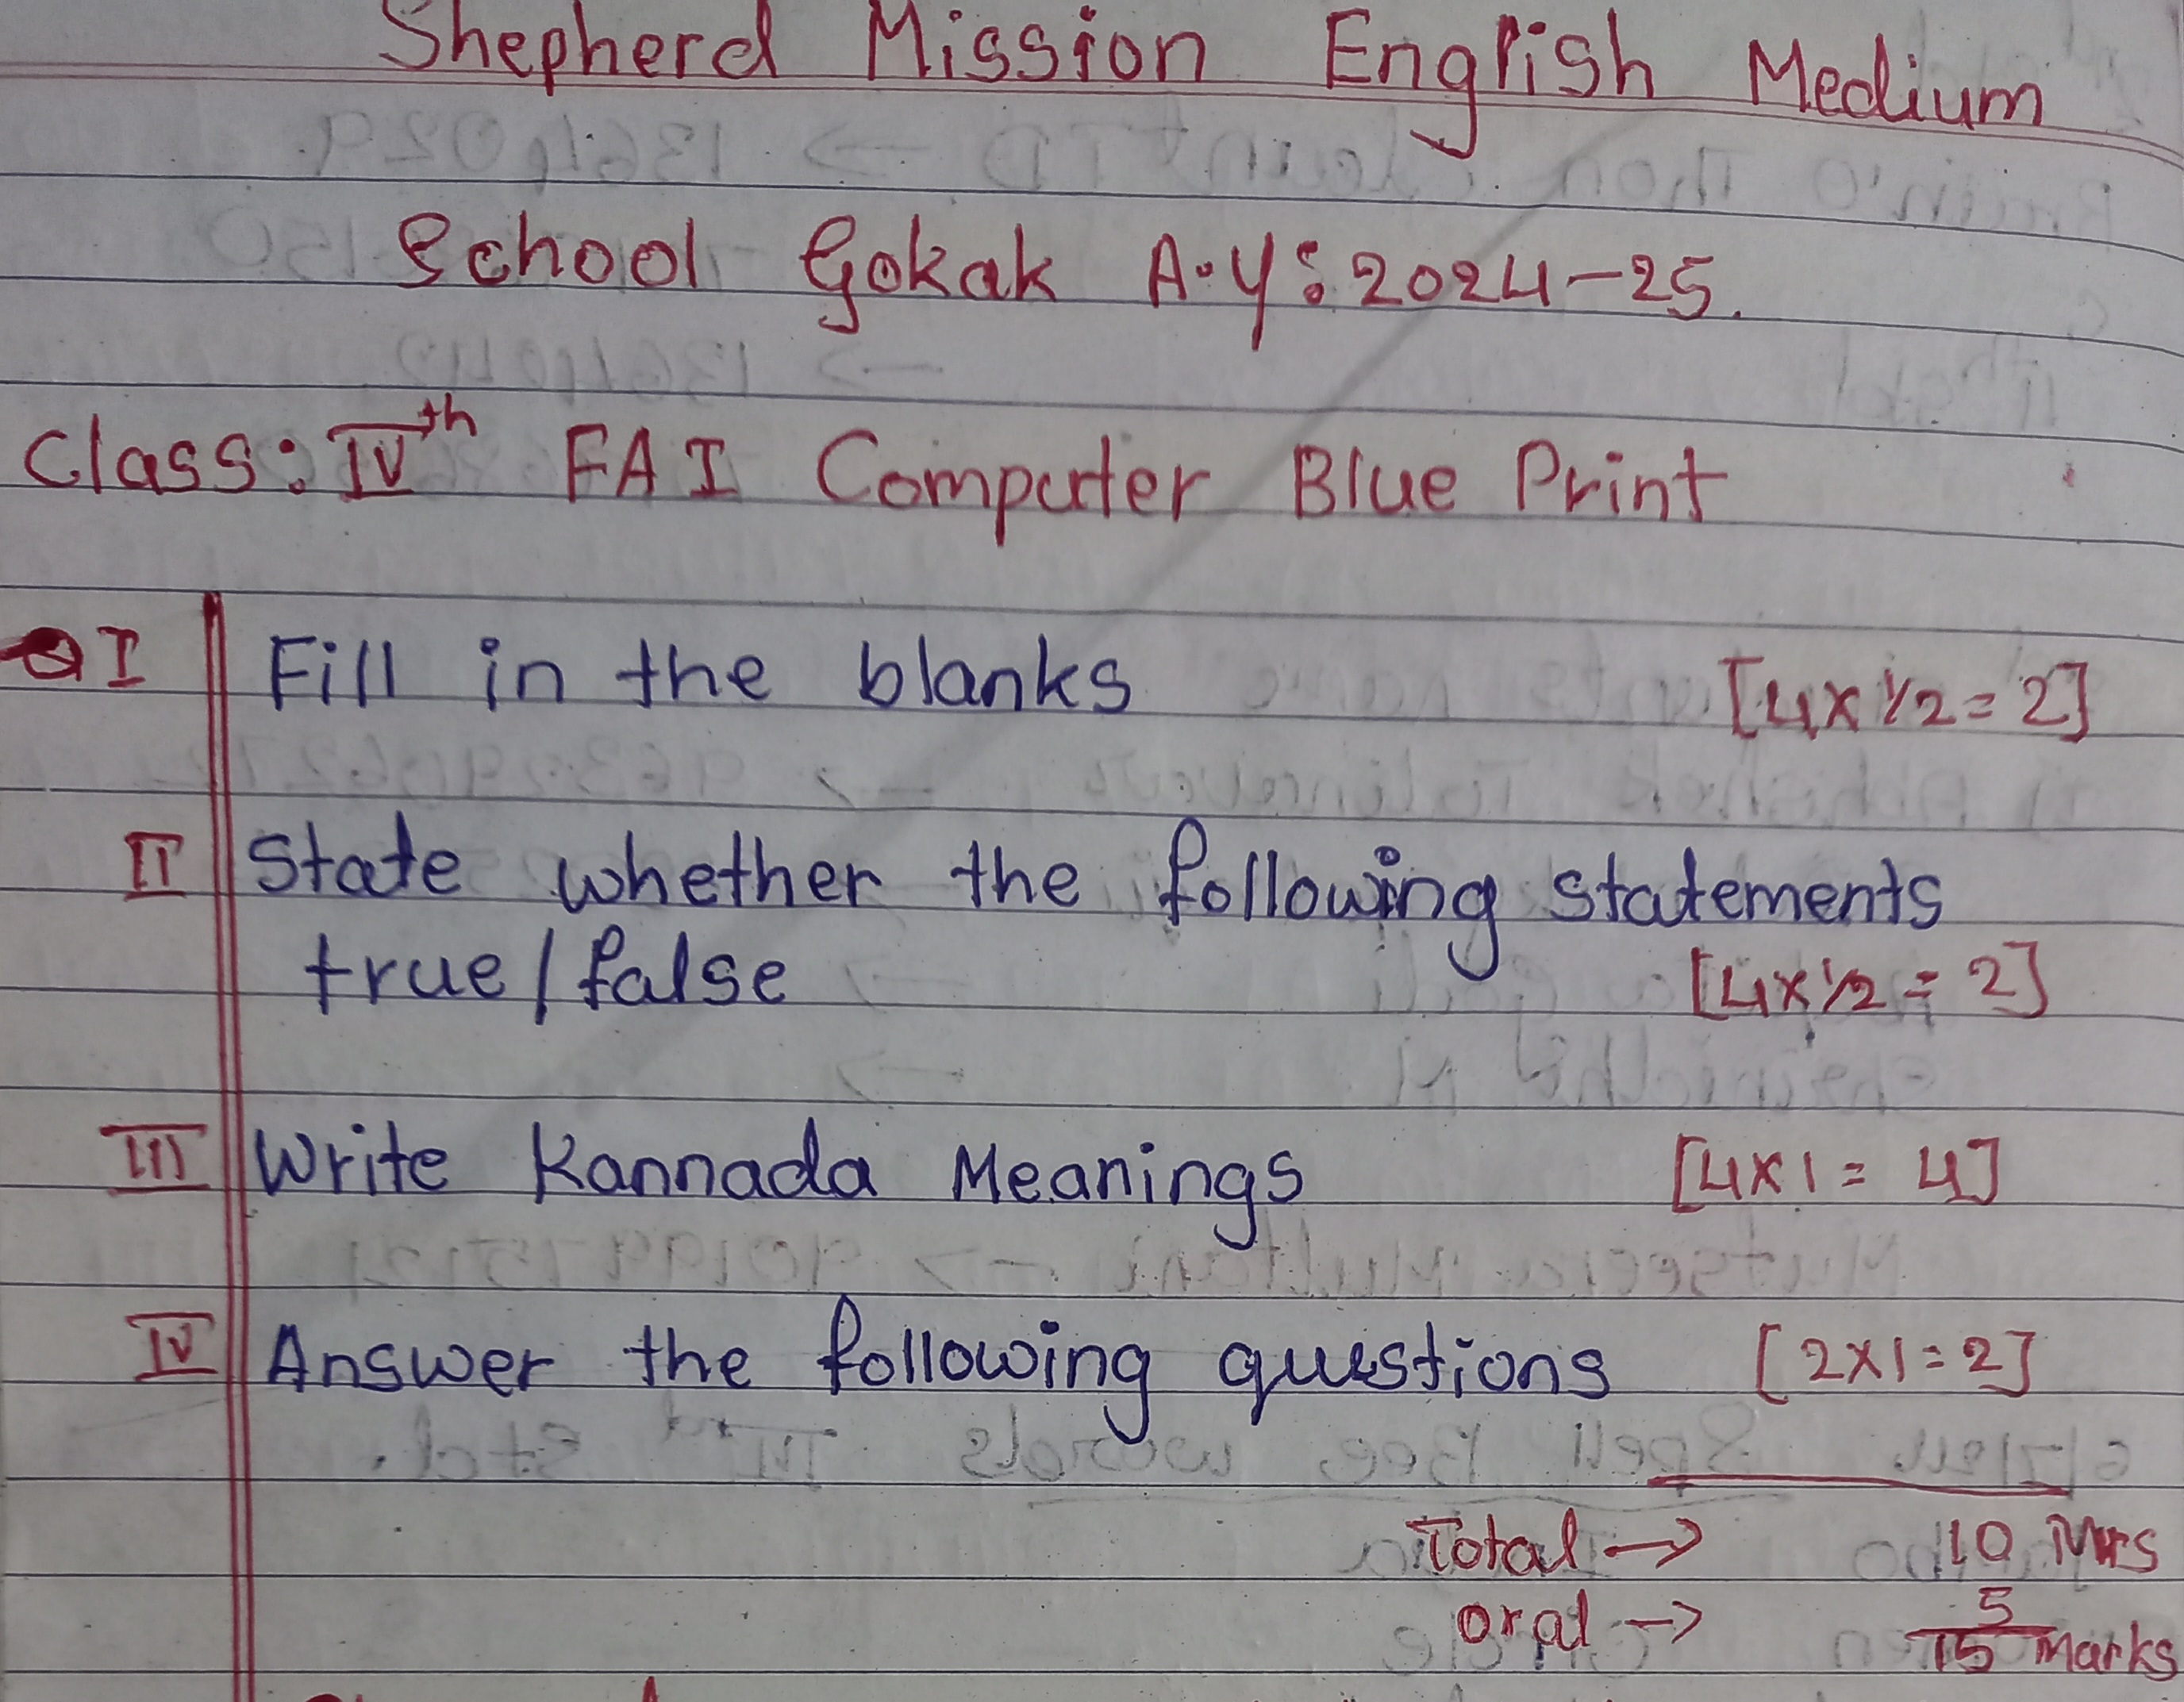 Shepherd Mission English Medium
School Gokak A.Y: 2024-25.
Class: IVth FA I Computer Blue Print
Q I Fill in the blanks [4x1/2=2]
II State whether the following statements
true/false [4x1/2=2]
III Write Kannada Meanings [4x1=4]
IV Answer the following questions [2x1=2]
Total → 10 Mrs
oral → 5
15 Marks